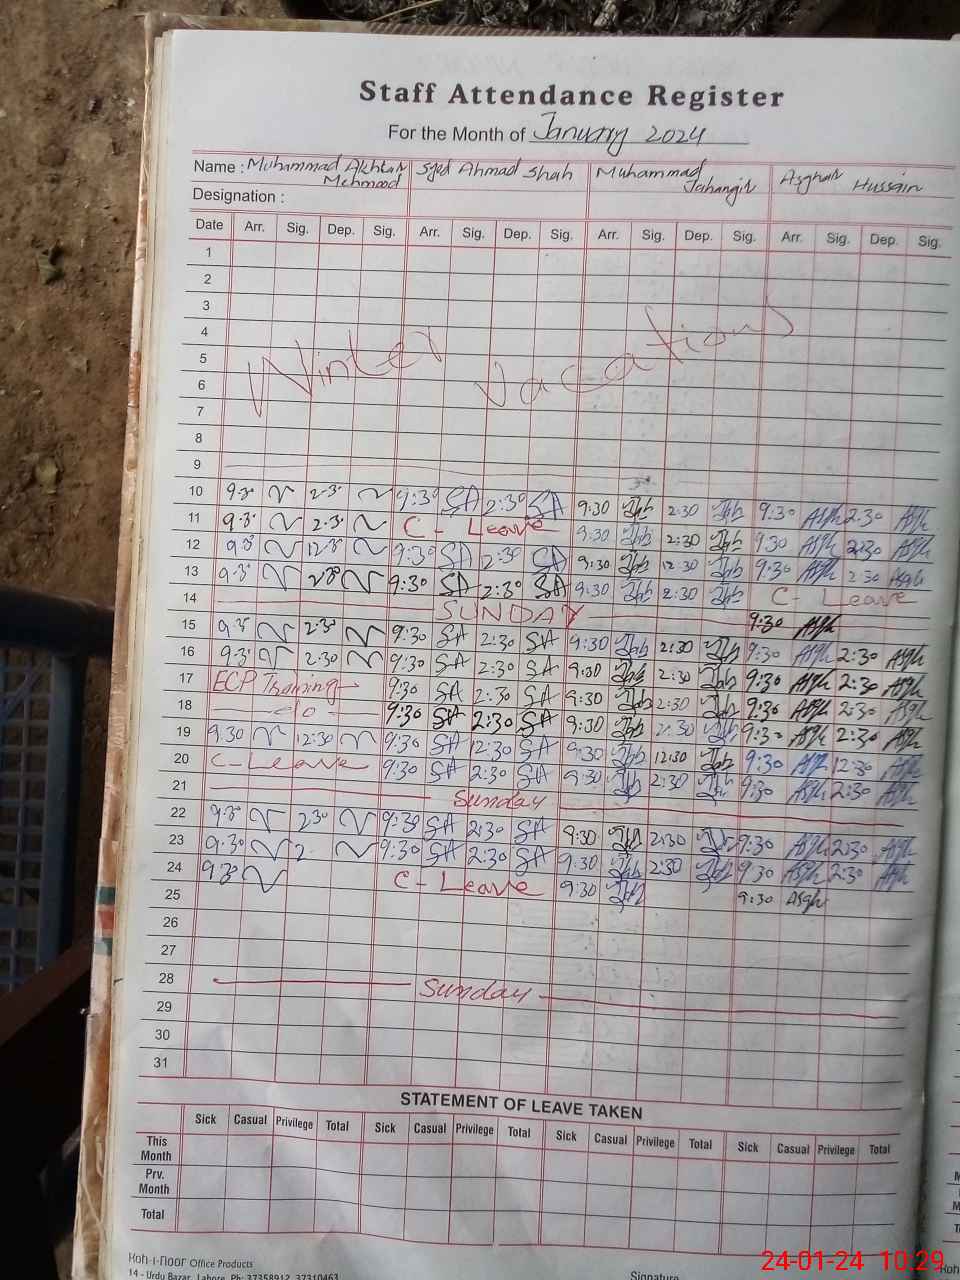 Staff Attendance Register
For the Month of January 2024
Name : Muhammad Akhtar Mehmood Syed Ahmad Shah Muhammad Jahangir Asghar Hussain
Designation :
Date Arr. Sig. Dep. Sig. Arr. Sig. Dep. Sig. Arr. Sig. Dep. Sig. Arr. Sig. Dep. Sig.
1
2
3
4
5
6
Winter Vacations
7
8
9
10 9:30 2:30 9:30 SA 2:30 SA 9:30 Jhb 2:30 Jhb 9:30 Asgh 2:30 Asgh
11 9:30 2:30 C - Leave 9:30 Jhb 2:30 Jhb 9:30 Asgh 2:30 Asgh
12 9:30 12:30 9:30 SA 2:30 SA 9:30 Jhb 12:30 Jhb 9:30 Asgh 2:30 Asgh
13 9:30 2:30 9:30 SA 2:30 SA 9:30 Jhb 2:30 Jhb C - Leave
14 SUNDAY 9:30 Asgh
15 9:30 2:30 9:30 SA 2:30 SA 9:30 Jhb 2:30 Jhb 9:30 Asgh 2:30 Asgh
16 9:30 2:30 9:30 SA 2:30 SA 9:30 Jhb 2:30 Jhb 9:30 Asgh 2:30 Asgh
17 ECP Training 9:30 SA 2:30 SA 9:30 Jhb 2:30 Jhb 9:30 Asgh 2:30 Asgh
18 do 9:30 SA 2:30 SA 9:30 Jhb 2:30 Jhb 9:30 Asgh 2:30 Asgh
19 9:30 12:30 9:30 SA 12:30 SA 9:30 Jhb 12:30 Jhb 9:30 Asgh 12:30 Asgh
20 C - Leave 9:30 SA 2:30 SA 9:30 Jhb 2:30 Jhb 9:30 Asgh 2:30 Asgh
21 Sunday
22 9:30 2:30 9:30 SA 2:30 SA 9:30 Jhb 2:30 Jhb 9:30 Asgh 2:30 Asgh
23 9:30 2 9:30 SA 2:30 SA 9:30 Jhb 2:30 Jhb 9:30 Asgh 2:30 Asgh
24 9:30 C - Leave 9:30 Jhb 9:30 Asgh
25
26
27
28 Sunday
29
30
31
STATEMENT OF LEAVE TAKEN
Sick Casual Privilege Total Sick Casual Privilege Total Sick Casual Privilege Total Sick Casual Privilege Total
This Month
Prv. Month
Total
Koh-i-Noor Office Products
14 - Urdu Bazar, Lahore. Ph: 37358912, 37310463
Signature
24-01-24 10:29